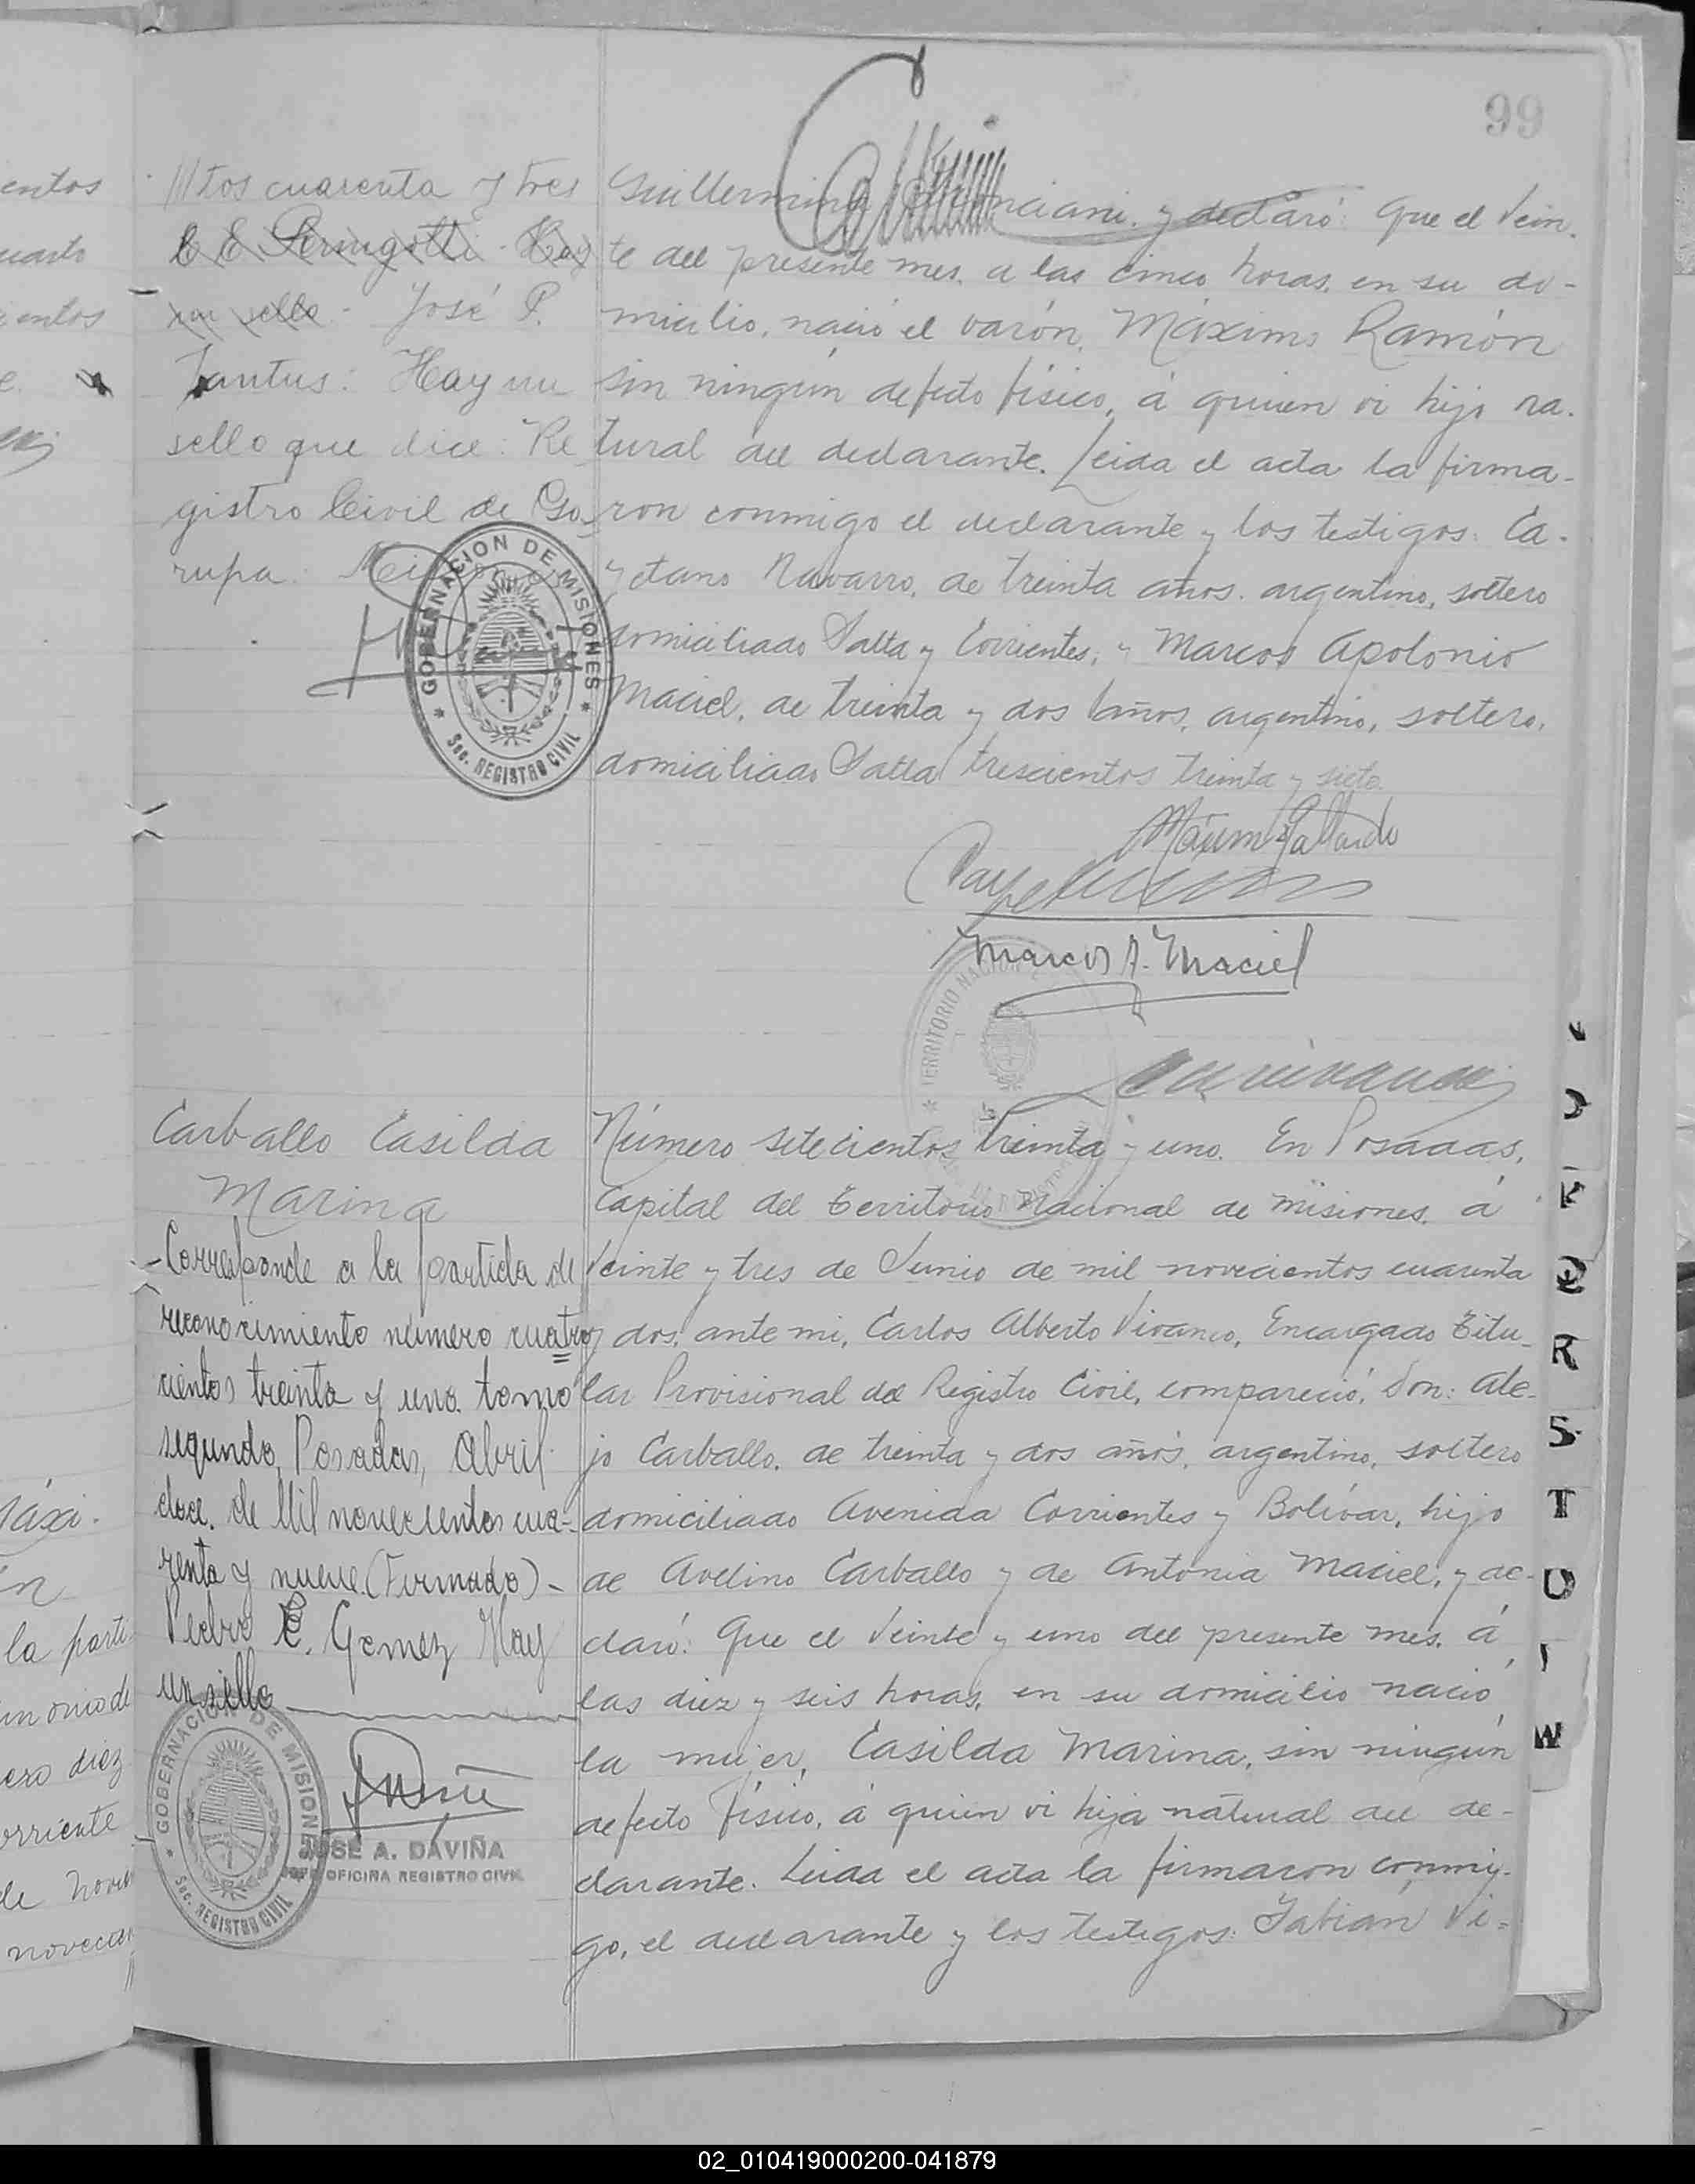 99
///tos cuarenta y tres
C E Peringotti - Hay
un sello - José P.
Jantus: Hay un
sello que dice: Re
gistro Civil de Ga-
rupa. Misiones
GOBERNACION DE MISIONES
Sec. REGISTRO CIVIL
Guillermina y declaró: Que el Vein-
te del presente mes, a las cinco horas, en su do-
micilio, nació el varón, Máximo Ramón
sin ningún defecto físico, á quien vi hijo na-
tural del declarante. Leida el acta la firma-
ron conmigo el declarante y los testigos: Ca-
yetano Navarro, de treinta años, argentino, soltero
domiciliado Salta y Corrientes, y Marcos Apolonio
Maciel, de treinta y dos años, argentino, soltero,
domiciliado Salta trescientos treinta y siete.
Máximo Gallardo
Marcos A. Maciel
TERRITORIO NACIONAL
Carballo Casilda
Marina
-Corresponde a la partida de
reconocimiento número cuatro
cientos treinta y uno. tomo
segundo, Posadas, Abril
doce. de Mil novecientos cua-
renta y nueve (Firmado) -
Pedro E. Gomez Hay
un sello
GOBERNACION DE MISIONES
Sec. REGISTRO CIVIL
JOSE A. DAVIÑA
JEFE OFICINA REGISTRO CIVIL
Número setecientos treinta y uno. En Posadas,
Capital del Territorio Nacional de Misiones, á
Veinte y tres de Junio de mil novecientos cuarenta
y dos, ante mi, Carlos Alberto Vivanco, Encargado Titu-
lar Provisional del Registro Civil, compareció, Don: Ale-
jo Carballo, de treinta y dos años, argentino, soltero
domiciliado Avenida Corrientes y Bolívar, hijo
de Avelino Carballo y de Antonia Maciel, y de-
claró: Que el Veinte y uno del presente mes, á
las diez y seis horas, en su domicilio nació
la mujer, Casilda Marina, sin ningún
defecto físico, á quien vi hija natural del de-
clarante. Leida el acta la firmaron conmi-
go, el declarante y los testigos: Fabián Vi-
R
S
T
U
W
02_010419000200-041879